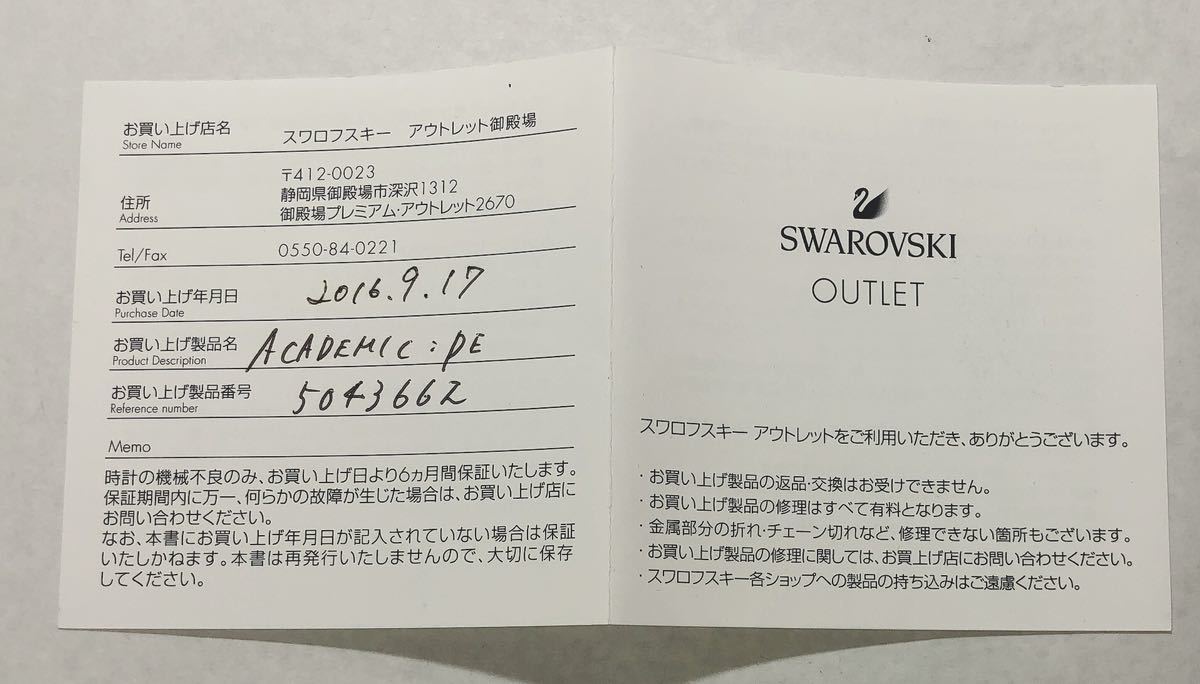 お買い上げ店名 スワロフスキー アウトレット御殿場
Store Name
〒412-0023
住所 静岡県御殿場市深沢1312
Address 御殿場プレミアム・アウトレット2670
Tel/Fax 0550-84-0221
お買い上げ年月日 2016.9.17
Purchase Date
お買い上げ製品名 ACADEMIC:PE
Product Description
お買い上げ製品番号 5043662
Reference number
Memo
時計の機械不良のみ、お買い上げ日より6ヵ月間保証いたします。
保証期間内に万一、何らかの故障が生じた場合は、お買い上げ店に
お問い合わせください。
なお、本書にお買い上げ年月日が記入されていない場合は保証
いたしかねます。本書は再発行いたしませんので、大切に保存
してください。
SWAROVSKI
OUTLET
スワロフスキー アウトレットをご利用いただき、ありがとうございます。
・お買い上げ製品の返品・交換はお受けできません。
・お買い上げ製品の修理はすべて有料となります。
・金属部分の折れ・チェーン切れなど、修理できない箇所もございます。
・お買い上げ製品の修理に関しては、お買上げ店にお問い合わせください。
・スワロフスキー各ショップへの製品の持ち込みはご遠慮ください。